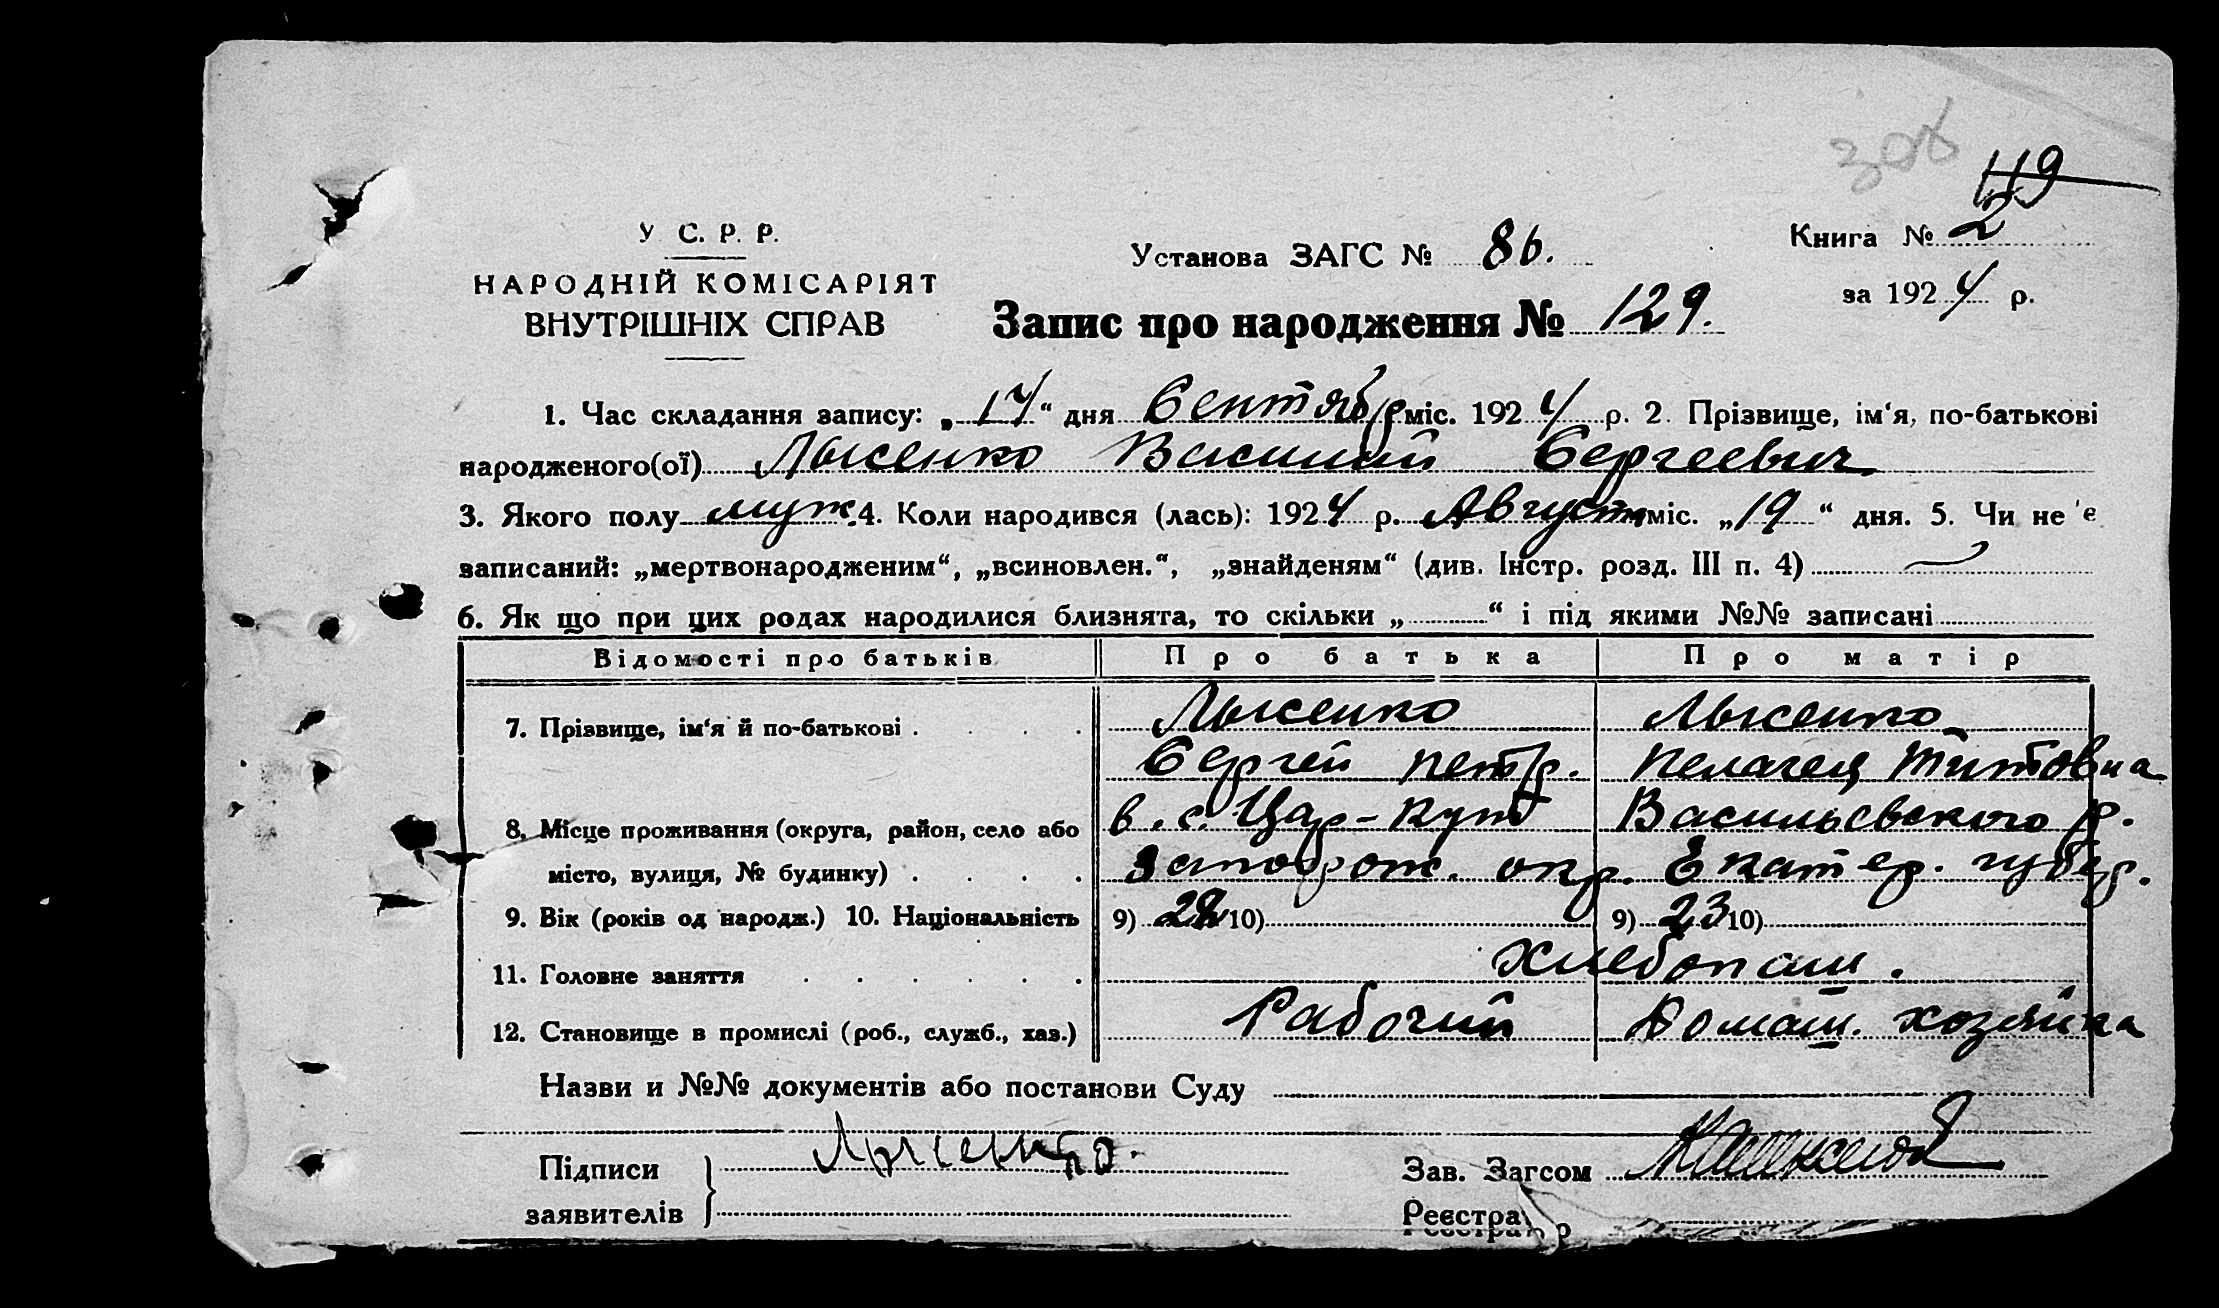 306
119
У С. Р. Р.
НАРОДНІЙ КОМІСАРІЯТ
ВНУТРІШНІХ СПРАВ
Установа ЗАГС № 86.
Книга № 2
за 1924 р.
Запис про народження № 129.
1. Час складання запису: „17“ дня Сентябр міс. 1924 р. 2. Прізвище, ім‘я, по-батькові
народженого(ої) Лысенко Василий Сергеевич
3. Якого полу муж. 4. Коли народився (лась): 1924 р. Августа міс. „19“ дня. 5. Чи не є
записаний: „мертвонародженим“, „всиновлен.“, „знайденям“ (див. Інстр. розд. III п. 4) —
6. Як що при цих родах народилися близнята, то скільки „ “ і під якими №№ записані
Відомості про батьків Про батька Про матір
7. Прізвище, ім‘я й по-батькові . . . . Лысенко Лысенко
Сергей Петр. Пелагея Титовна
8. Місце проживання (округа, район, село або в. с. Цар-Кут Васильевского р.
місто, вулиця, № будинку) . . . . Запорож. окр. Екатер. губер.
9. Вік (років од народж.) 10. Національність 9) 28 10) 9) 23 10)
11. Головне заняття . . . . . . Хлебопаш.
12. Становище в промислі (роб., служб., хаз.) Рабочий Домаш. хозяйка
Назви и №№ документів або постанови Суду
Підписи Лысенко.
заявителів
Зав. Загсом
Реєстра